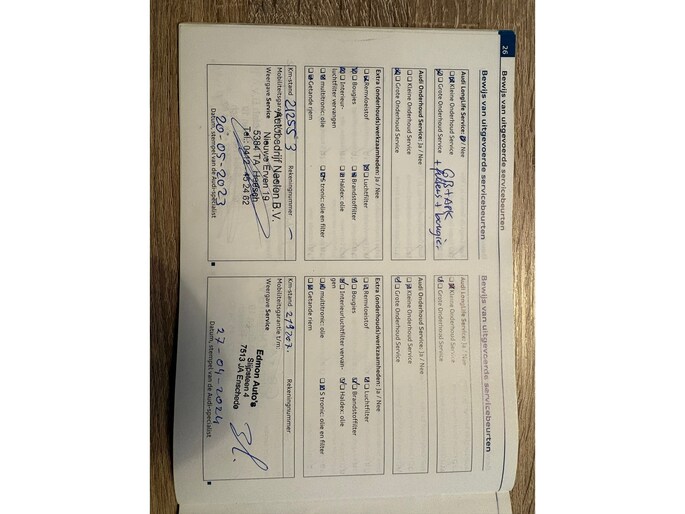 26
Bewijs van uitgevoerde servicebeurten
Bewijs van uitgevoerde servicebeurten
Audi LongLife Service: Ja / Nee
Kleine Onderhoud Service
Grote Onderhoud Service
GB + APK
+ filters + bougie
Audi Onderhoud Service: Ja / Nee
Kleine Onderhoud Service
Grote Onderhoud Service
Extra (onderhouds)werkzaamheden: Ja / Nee
Remvloeistof
Luchtfilter
Bougies
Brandstoffilter
Interieur-
luchtfilter vervangen
Haldex: olie
multitronic: olie
S tronic: olie en filter
Getande riem
Km-stand 212553
Rekeningnummer
Mobiliteitsgarantie
Weergave Service
Autobedrijf Naelon B.V.
Nieuwe Erven 19
5384 TA Heesch
Tel.: 0412 - 45 24 82
20-05-2023
Datum, stempel van de Audi-specialist
Bewijs van uitgevoerde servicebeurten
Audi LongLife Service: Ja / Nee
Kleine Onderhoud Service
Grote Onderhoud Service
Audi Onderhoud Service: Ja / Nee
Kleine Onderhoud Service
Grote Onderhoud Service
Extra (onderhouds)werkzaamheden: Ja / Nee
Remvloeistof
Luchtfilter
Bougies
Brandstoffilter
Interieurluchtfilter vervan-
gen
Haldex: olie
multitronic: olie
S tronic: olie en filter
Getande riem
Km-stand 219707.
Rekeningnummer
Mobiliteitsgarantie t/m:
Weergave Service
Edmon Auto's
Slijpsteen 4
7513 JA Enschede
27-04-2024
Datum, stempel van de Audi-specialist